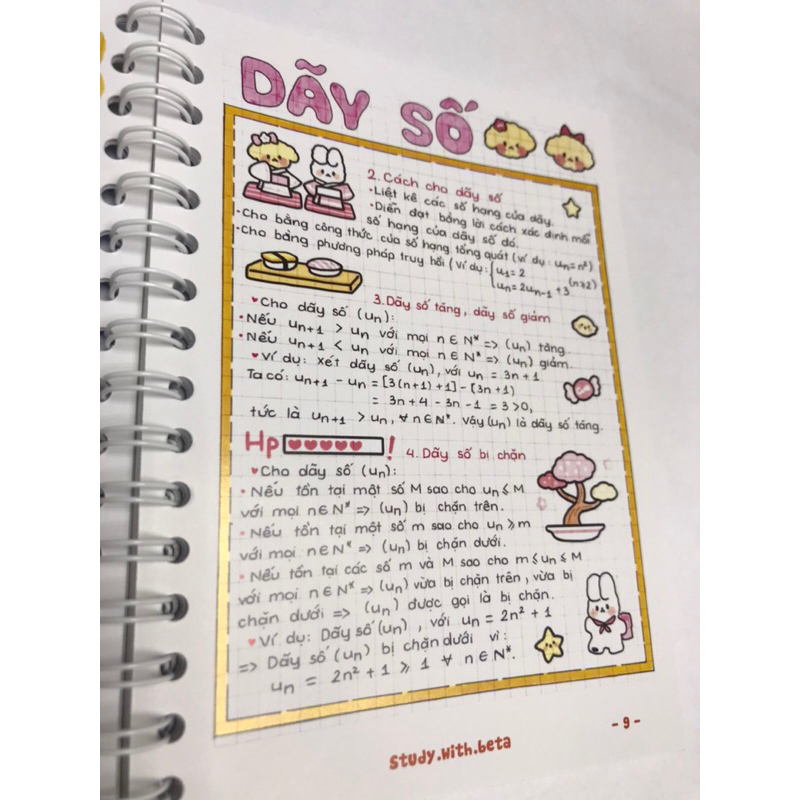 DÃY SỐ
2. Cách cho dãy số
• Liệt kê các số hạng của dãy.
• Diễn đạt bằng lời cách xác định mỗi
số hạng của dãy số đó.
• Cho bằng công thức của số hạng tổng quát (ví dụ: uₙ = n²)
• Cho bằng phương pháp truy hồi (ví dụ: {u₁ = 2
uₙ = 2uₙ₋₁ + 3 (n ≥ 2)
3. Dãy số tăng, dãy số giảm
♥ Cho dãy số (uₙ):
• Nếu uₙ₊₁ > uₙ với mọi n ∈ N* => (uₙ) tăng
• Nếu uₙ₊₁ < uₙ với mọi n ∈ N* => (uₙ) giảm.
♥ Ví dụ: xét dãy số (uₙ), với uₙ = 3n + 1
Ta có: uₙ₊₁ - uₙ = [3(n+1) + 1] - (3n + 1)
= 3n + 4 - 3n - 1 = 3 > 0,
tức là uₙ₊₁ > uₙ, ∀ n ∈ N*. Vậy (uₙ) là dãy số tăng.
Hp !
4. Dãy số bị chặn
♥ Cho dãy số (uₙ):
• Nếu tồn tại một số M sao cho uₙ ≤ M
với mọi n ∈ N* => (uₙ) bị chặn trên.
• Nếu tồn tại một số m sao cho uₙ ≥ m
với mọi n ∈ N* => (uₙ) bị chặn dưới.
• Nếu tồn tại các số m và M sao cho m ≤ uₙ ≤ M
với mọi n ∈ N* => (uₙ) vừa bị chặn trên, vừa bị
chặn dưới => (uₙ) được gọi là bị chặn.
♥ Ví dụ: Dãy số (uₙ), với uₙ = 2n² + 1
=> Dãy số (uₙ) bị chặn dưới vì:
uₙ = 2n² + 1 ≥ 1 ∀ n ∈ N*.
- 9 -
Study.with.beta